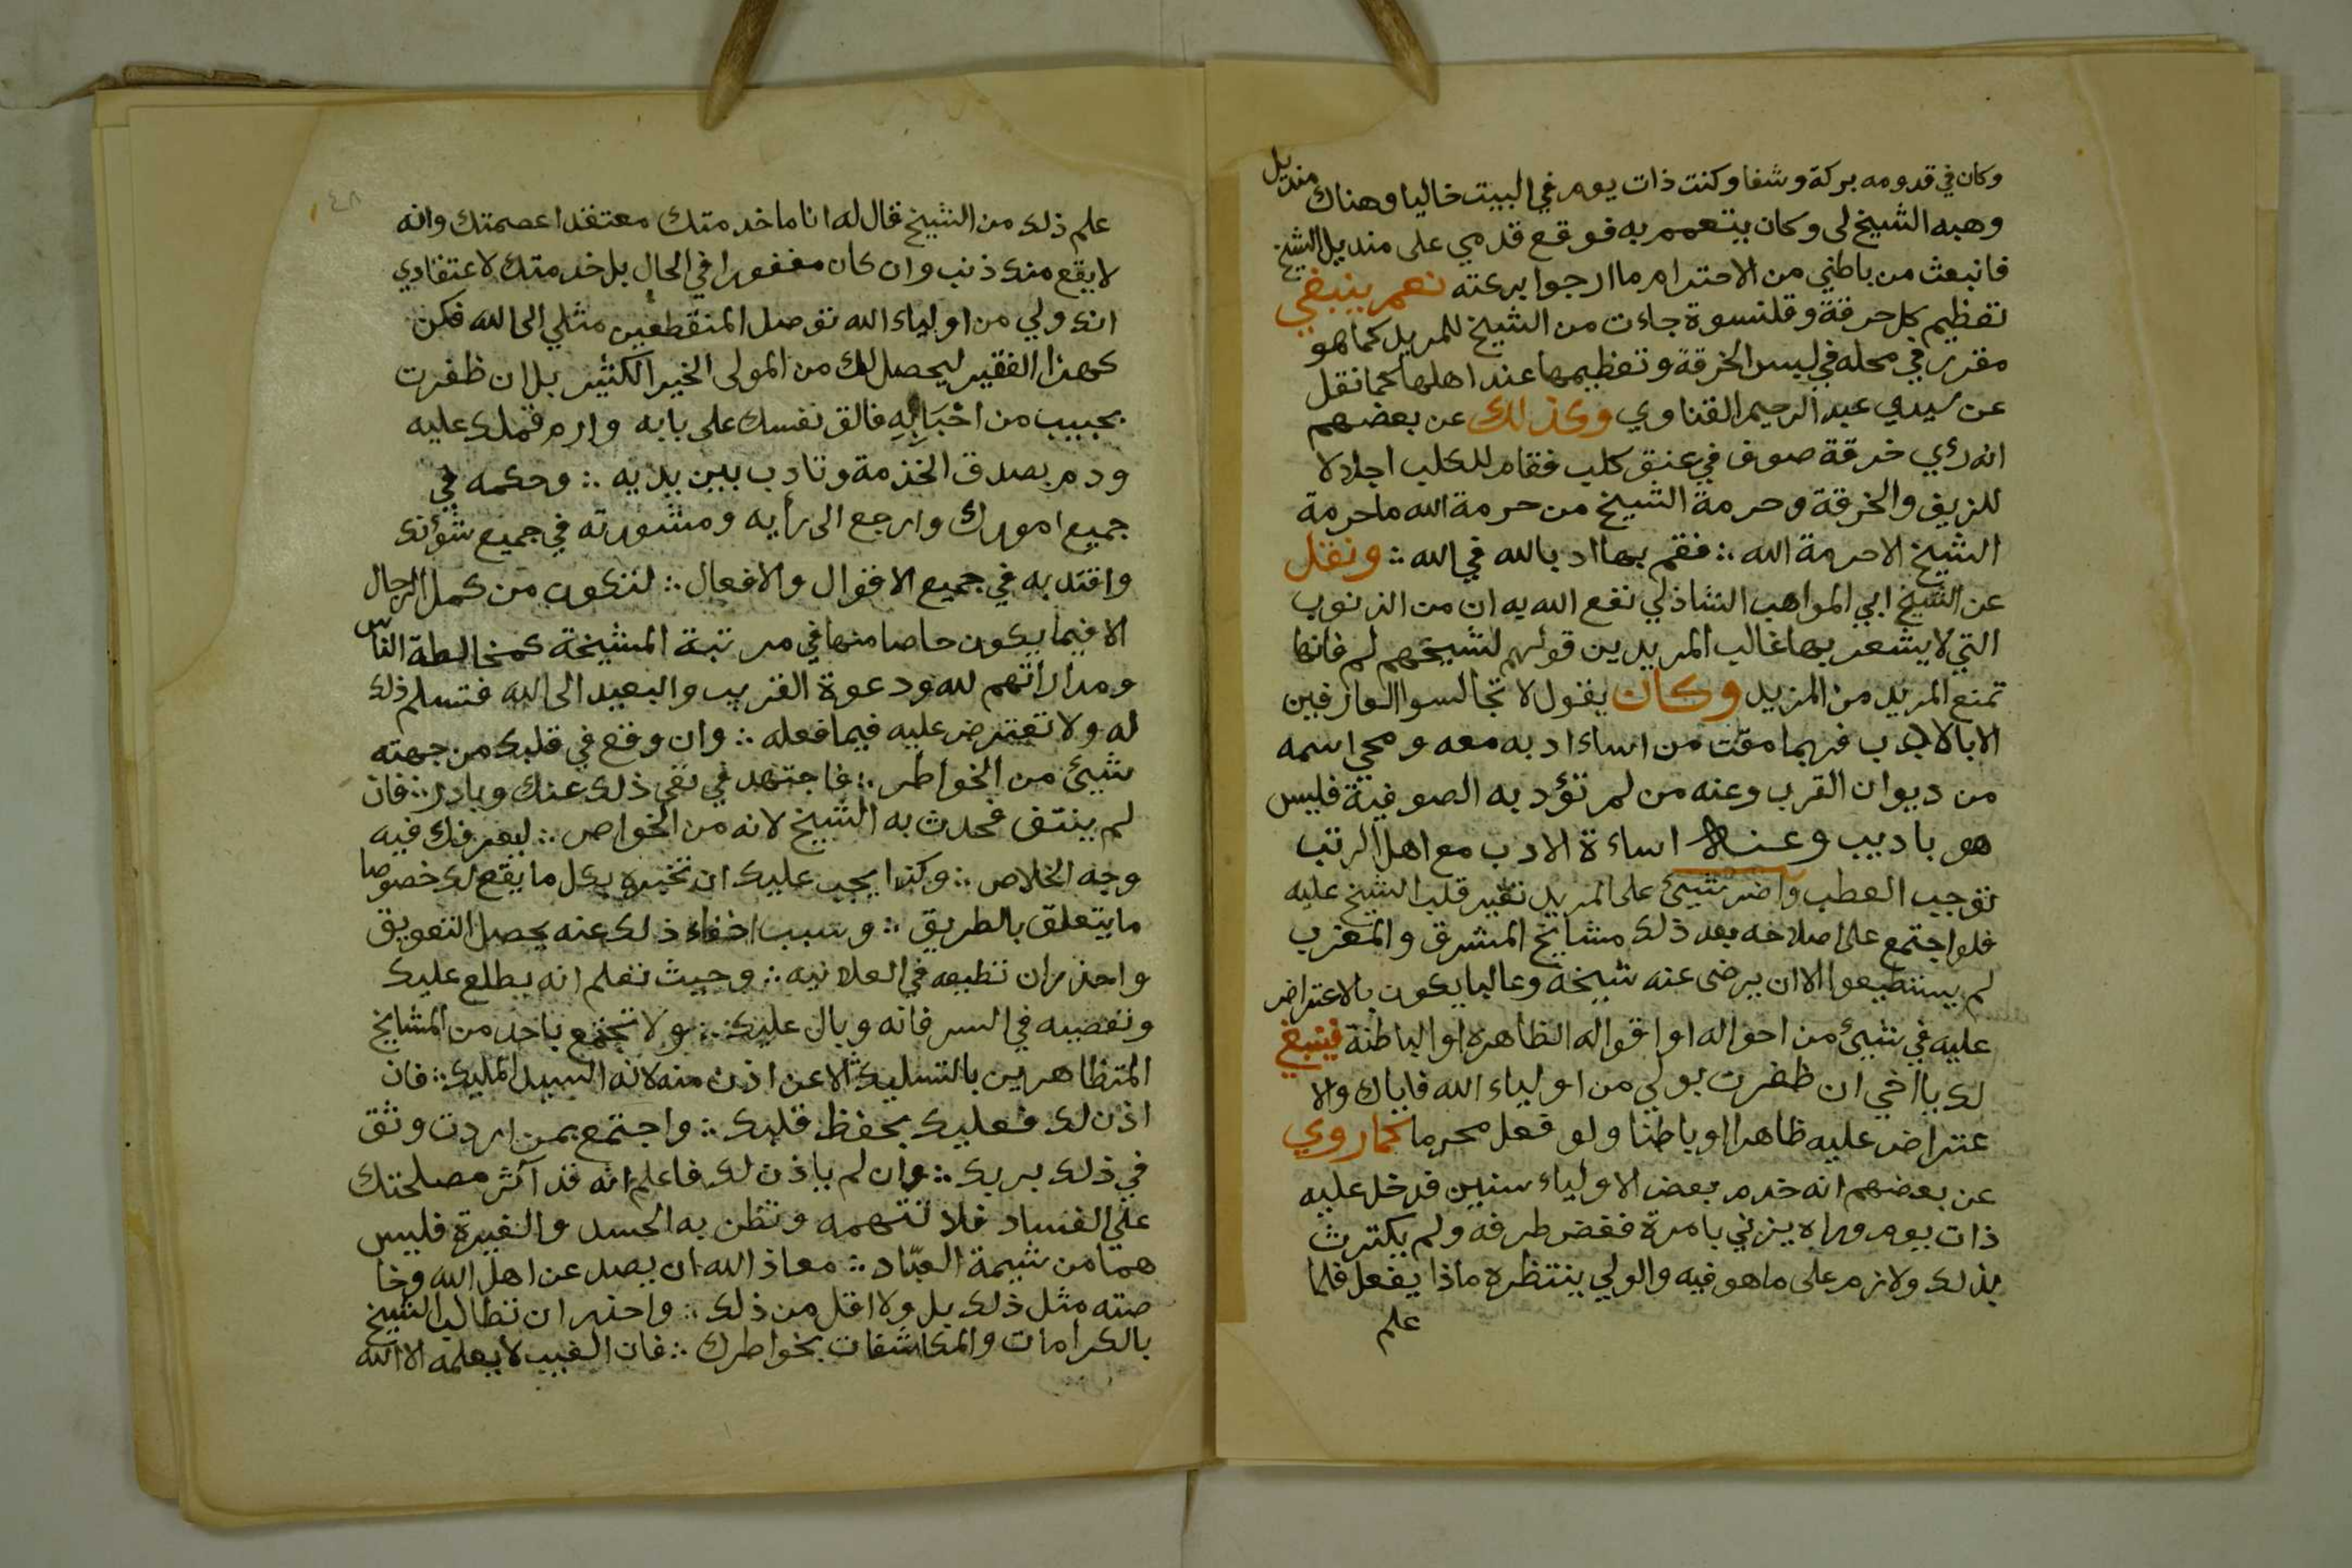 وكان في قدومه بركة وشفا وكنت ذات يوم في البيت خاليا وهناك منديل
وهبه الشيخ لي وكان يتعمم به فوقع قدمي على منديل الشيخ
فانبعث من باطني من الاحترام ما ارجوا بركته نعم ينبغي
تعظيم كل خرقة وقلنسوة جاءت من الشيخ للمريد كما هو
مقرر في محله في لبس الخرقة وتعظيمها عند اهلها كما نقل
عن سيدي عبد الرحيم القناوي وكذلك عن بعضهم
انه رءي خرقة صوف في عنق كلب فقام للكلب اجلالا
للزيق والخرقة وحرمة الشيخ من حرمة الله ما حرمة
الشيخ الا حرمة الله ∴ فقم بها ادبا لله في الله ∴ ونقل
عن الشيخ ابي المواهب الشاذلي نفع الله به ان من الذنوب
التي لا يشعر بها غالب المريدين قولهم لشيخهم لم فانها
تمنع المريد من المزيد وكان يقول لا تجالسوا العارفين
الا بالادب فربما مقت من اساء ادبه معه ومحي اسمه
من ديوان القرب وعنه من لم تؤدبه الصوفية فليس
هو باديب وعنه اساءة الادب مع اهل الرتب
توجب العطب واضر شيئ على المريد تغير قلب الشيخ عليه
فلو اجتمع على اصلاحه بعد ذلك مشايخ المشرق والمغرب
لم يستطيعوا الا ان يرضى عنه شيخه وغالبا يكون بالاعتراض
عليه في شيئ من احواله او اقواله الظاهرة او الباطنة فينبغي
لك يا اخي ان ظفرت بولي من اولياء الله فاياك والا
عتراض عليه ظاهرا او باطنا ولو فعل محرما كما روي
عن بعضهم انه خدم بعض الاولياء سنين فدخل عليه
ذات يوم وراه يزني بامرة فغض طرفه ولم يكترث
بذلك ولازم على ما هو فيه والولي ينتظره ماذا يفعل فلما
علم
٤٨
علم ذلك من الشيخ قال له انا ما خدمتك معتقدا عصمتك وانه
لا يقع منك ذنب وان كان مغفورا في الحال بل خدمتك لاعتقادي
انك ولي من اولياء الله توصل المنقطعين مثلي الى الله فكن
كهذا الفقير ليحصل لك من المولى الخير الكثير بل ان ظفرت
بحبيب من احْبَابِهِ فالق نفسك على بابه وارم قملك عليه
ودم بصدق الخدمة وتادب بين يديه ∴ وحكمه في
جميع امورك وارجع الى رأيه ومشورته في جميع شؤنك
واقتد به في جميع الاقوال والافعال ∴ لتكون من كمل الرجال
الا فيما يكون خاصا منها في مرتبة المشيخة كمخالطة الناس
ومداراتهم لله ودعوة القريب والبعيد الى الله فتسلم ذلك
له ولا تعترض عليه فيما فعله ∴ وان وقع في قلبك من جهته
شيئ من الخواطر ∴ فاجتهد في نفي ذلك عنك وبادر ∴ فان
لم ينتف فحدث به الشيخ لانه من الخواص ∴ ليعرفك فيه
وجه الخلاص ∴ وكذا يجب عليك ان تخبره بكل ما يقع لك خصوصا
ما يتعلق بالطريق ∴ وسبب اخفاء ذلك عنه يحصل التعويق
واحذر ان تطيعه في العلانيه ∴ وحيث تعلم انه يطلع عليك
وتعصيه في السر فانه وبال عليك ∴ ولا تجتمع باحد من المشايخ
المتظاهرين بالتسليك الا عن اذن منه لانه السيد المليك ∴ فان
اذن لك فعليك بحفظ قلبك ∴ واجتمع بمن اردت وثق
في ذلك بربك ∴ وان لم ياذن لك فاعلم انه قد آثر مصلحتك
على الفساد فلا تتهمه وتظن به الحسد والغيرة فليس
هما من شيمة العبّاد ∴ معاذ الله ان يصد عن اهل الله وخا
صته مثل ذلك بل ولا اقل من ذلك ∴ واحذر ان تطالب الشيخ
بالكرامات والمكاشفات بخواطرك ∴ فان الغيب لا يعلمه الا الله